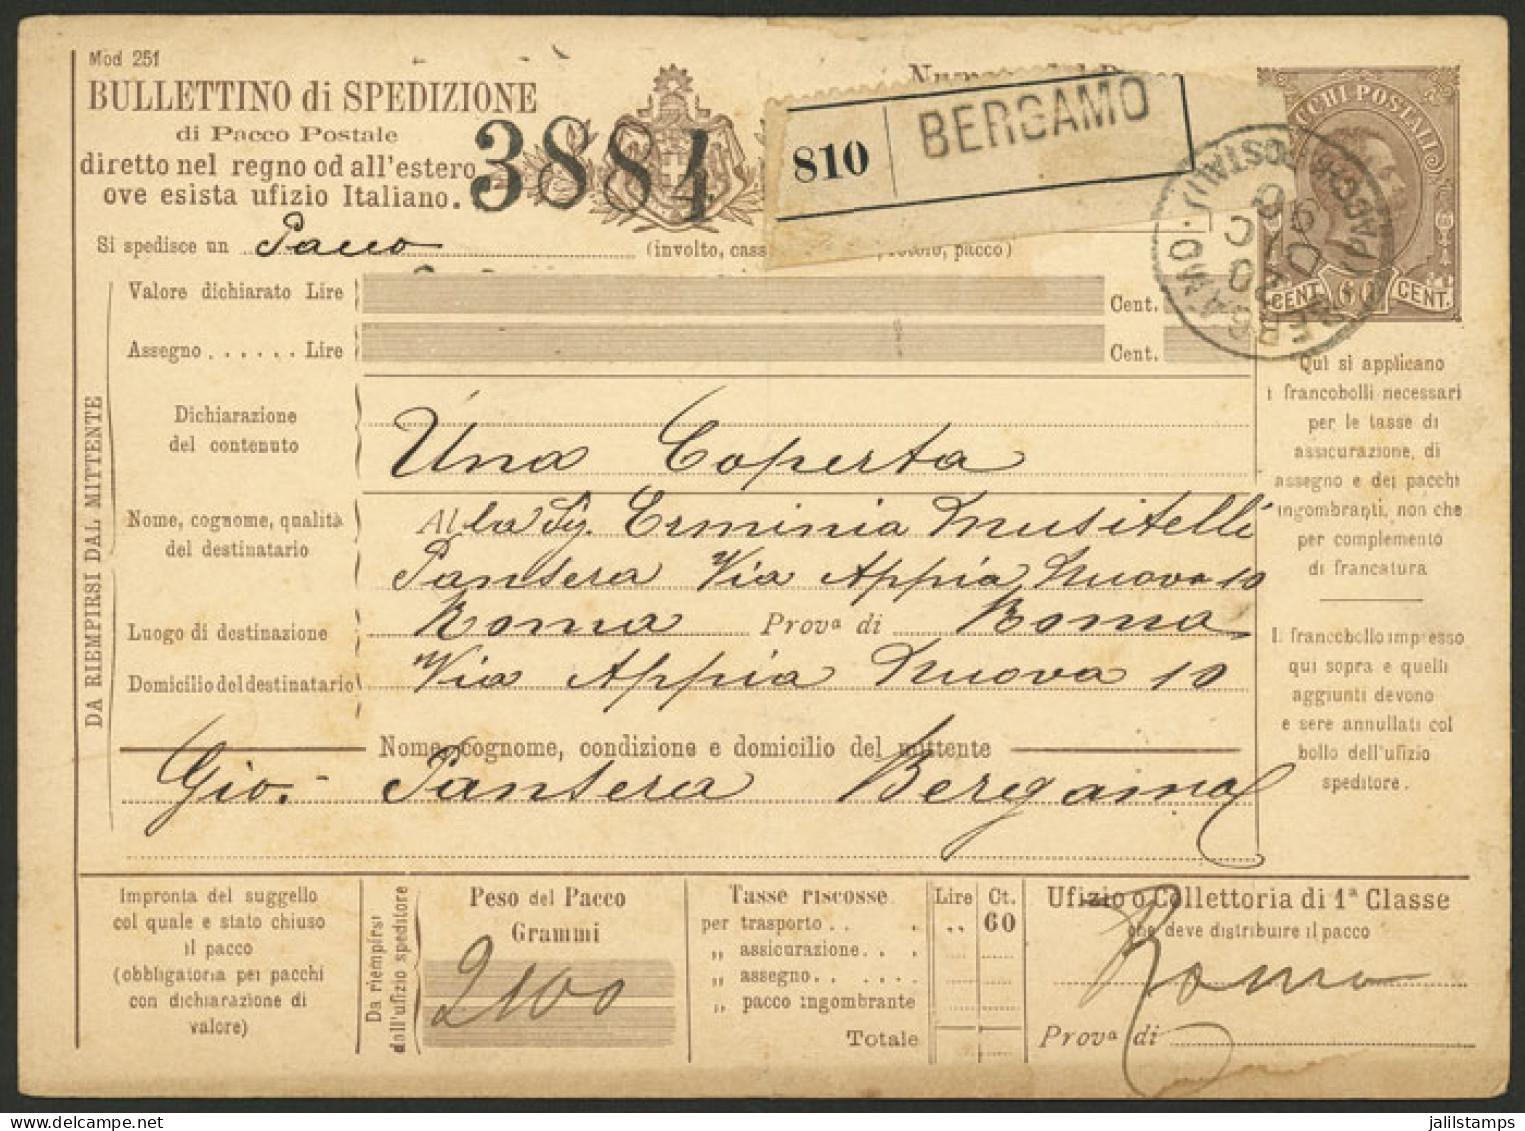 Mod 251
BULLETTINO di SPEDIZIONE
di Pacco Postale
diretto nel regno od all'estero
ove esista ufizio Italiano.
3884
810 BERGAMO
PACCHI POSTALI
CENT. 60 CENT.
BERGAMO
20 DIC 96
Si spedisce un Pacco (involto, pacco)
Valore dichiarato Lire Cent.
Assegno . . . . . . Lire Cent.
DA RIEMPIRSI DAL MITTENTE
Dichiarazione
del contenuto
Una Coperta
Nome, cognome, qualità
del destinatario
Alla Sg. Erminia Musitelli
Pansera Via Appia Nuova 10
Luogo di destinazione Roma Provª di Roma
Domicilio del destinatario Via Appia Nuova 10
Nome, cognome, condizione e domicilio del mittente
Gio. Pansera Bergamo
Qui si applicano
i francobolli necessari
per le tasse di
assicurazione, di
assegno e dei pacchi
ingombranti, non che
per complemento
di francatura
Il francobollo impresso
qui sopra e quelli
aggiunti devono
e sere annullati col
bollo dell'ufizio
speditore.
Impronta del suggello
col quale e stato chiuso
il pacco
(obbligatoria pei pacchi
con dichiarazione di
valore)
Da riempirsi
dall'ufizio speditore
Peso del Pacco
Grammi
2100
Tasse riscosse Lire Ct.
per trasporto . . . .. 60
„ assicurazione . . .
„ assegno . . . . . .
„ pacco ingombrante
Totale
Ufizio o Collettoria di 1ª Classe
che deve distribuire il pacco
Roma
Provª di
jalilstamps@gmail.com